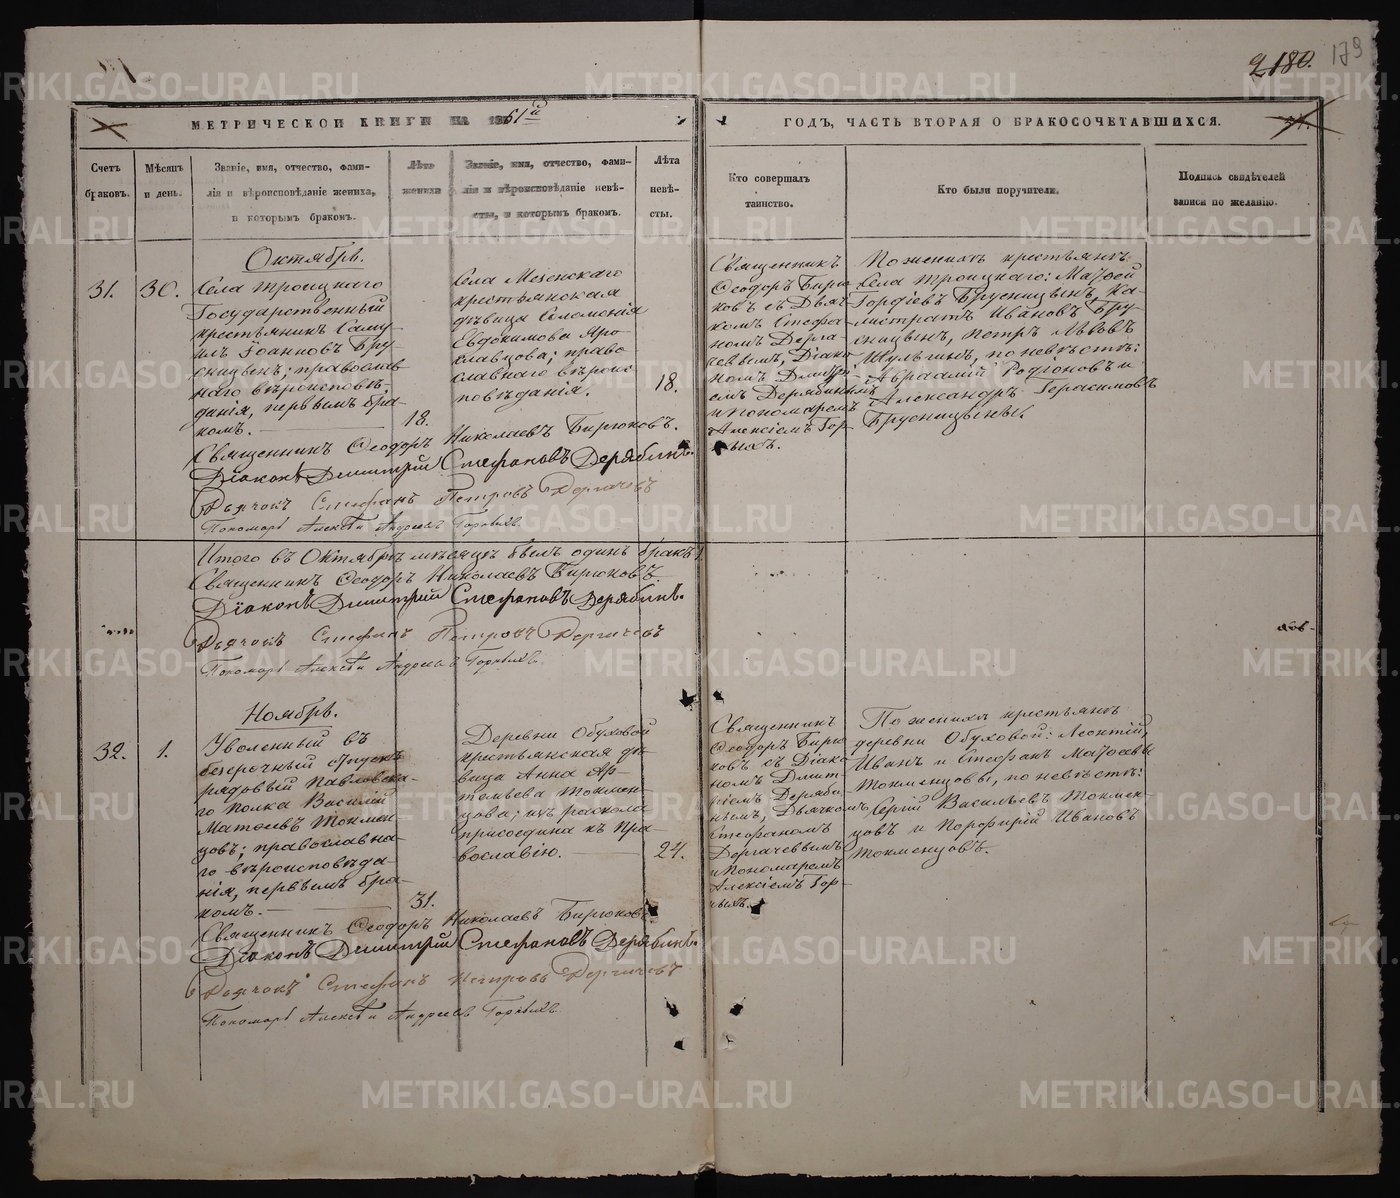 2180.
179
МЕТРИЧЕСКОЙ КНИГИ НА 1861й
ГОДЪ, ЧАСТЬ ВТОРАЯ О БРАКОСОЧЕТАВШИХСЯ.
Счетъ браковъ.
Мѣсяцъ и день.
Званіе, имя, отчество, фами-
лія и вѣроисповѣданіе жениха,
и которымъ бракомъ.
Лѣта
жениха
Званіе, имя, отчество, фами-
лія и вѣроисповѣданіе невѣ-
сты, и которымъ бракомъ.
Лѣта
невѣ-
сты.
Кто совершалъ
таинство.
Кто были поручители.
Подпись свидѣтелей
записи по желанію.
Октябрь.
31.
30.
Села Троицкаго
Государственный
крестьянинъ Саму-
илъ Іоанновъ Бру-
сницынъ; православ-
наго вѣроисповѣ-
данія, первымъ бра-
комъ.
18.
Села Мезенскаго
крестьянская
дѣвица Соломонія
Евдокимова Яро-
славцова; право-
славнаго вѣроис-
повѣданія.
18.
Священникъ
Ѳеодоръ Бирю-
ковъ съ Дьяч-
комъ Стефа-
номъ Дерга-
чевымъ, Діако-
номъ Димитрі-
емъ Дерябинымъ
и Пономаремъ
Алексіемъ Гор-
ныхъ.
По женихѣ крестьяне
Села Троицкаго: Матѳей
Гордіевъ Брусницынъ, Ка-
листратъ Ивановъ Бру-
сницынъ, Петръ Львовъ
Шульгинъ, по невѣстѣ:
Авраамій Родіоновъ и
Александръ Герасимовъ
Брусницыны.
Священникъ Ѳеодоръ Николаевъ Бирюковъ.
Діаконъ Димитрій Стефановъ Дерябинъ.
Дьячокъ Стефанъ Петровъ Дергачевъ
Пономарь Алексѣй Андреевъ Горныхъ.
Итого въ Октябрѣ мѣсяцѣ былъ одинъ бракъ 1.
Священникъ Ѳеодоръ Николаевъ Бирюковъ.
Діаконъ Димитрій Стефановъ Дерябинъ.
Дьячокъ Стефанъ Петровъ Дергачевъ
Пономарь Алексѣй Андреевъ Горныхъ.
Ноябрь.
32.
1.
Уволенный въ
безсрочный отпускъ
рядовый Павловска-
го полка Василій
Матѳеевъ Токмен-
цовъ; православна-
го вѣроисповѣда-
нія, первымъ бра-
комъ.
31.
Деревни Обуховой
крестьянская дѣ-
вица Анна Ар-
темьева Токмен-
цова; изъ раскола
присоедина къ пра-
вославію.
24.
Священникъ
Ѳеодоръ Бирю-
ковъ съ Діако-
номъ Димит-
ріемъ Деряби-
нымъ, Дьячкомъ
Стефаномъ
Дергачевымъ
и Пономаремъ
Алексіемъ Гор-
ныхъ.
По женихѣ крестьяне
деревни Обуховой: Леонтій,
Иванъ и Стефанъ Матѳеевы
Токменцовы, по невѣстѣ:
Сергій Васильевъ Токмен-
цовъ и Порфирій Ивановъ
Токменцовъ.
Священникъ Ѳеодоръ Николаевъ Бирюковъ.
Діаконъ Димитрій Стефановъ Дерябинъ.
Дьячокъ Стефанъ Петровъ Дергачевъ
Пономарь Алексѣй Андреевъ Горныхъ.
METRIKI.GASO-URAL.RU